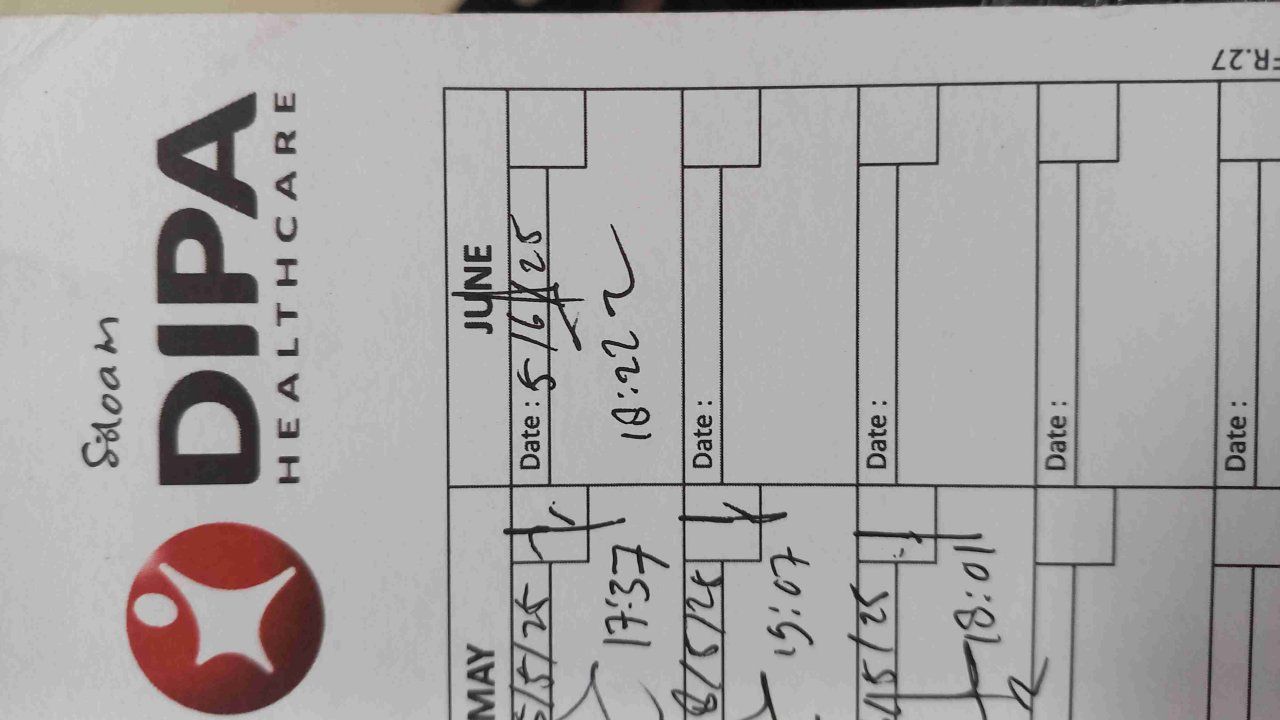 Siloam
DIPA
HEALTHCARE
FR.27
MAY
JUNE
/5/25
17:37
Date : 5/6/25
18:22
8/5/25
19:07
Date :
/5/25
18:01
Date :
Date :
Date :